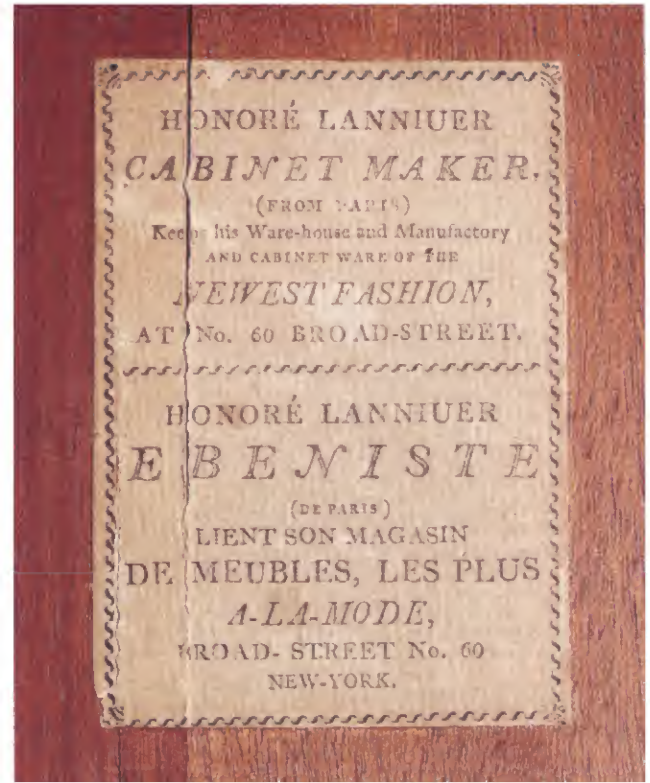 HONORÉ LANNIUER
CABINET MAKER.
(FROM PARIS)
Keeps his Ware-house and Manufactory
AND CABINET WARE OF THE
NEWEST FASHION,
AT No. 60 BROAD-STREET.
HONORÉ LANNIUER
EBENISTE
(DE PARIS)
LIENT SON MAGASIN
DE MEUBLES, LES PLUS
A-LA-MODE,
BROAD- STREET No. 60
NEW-YORK.